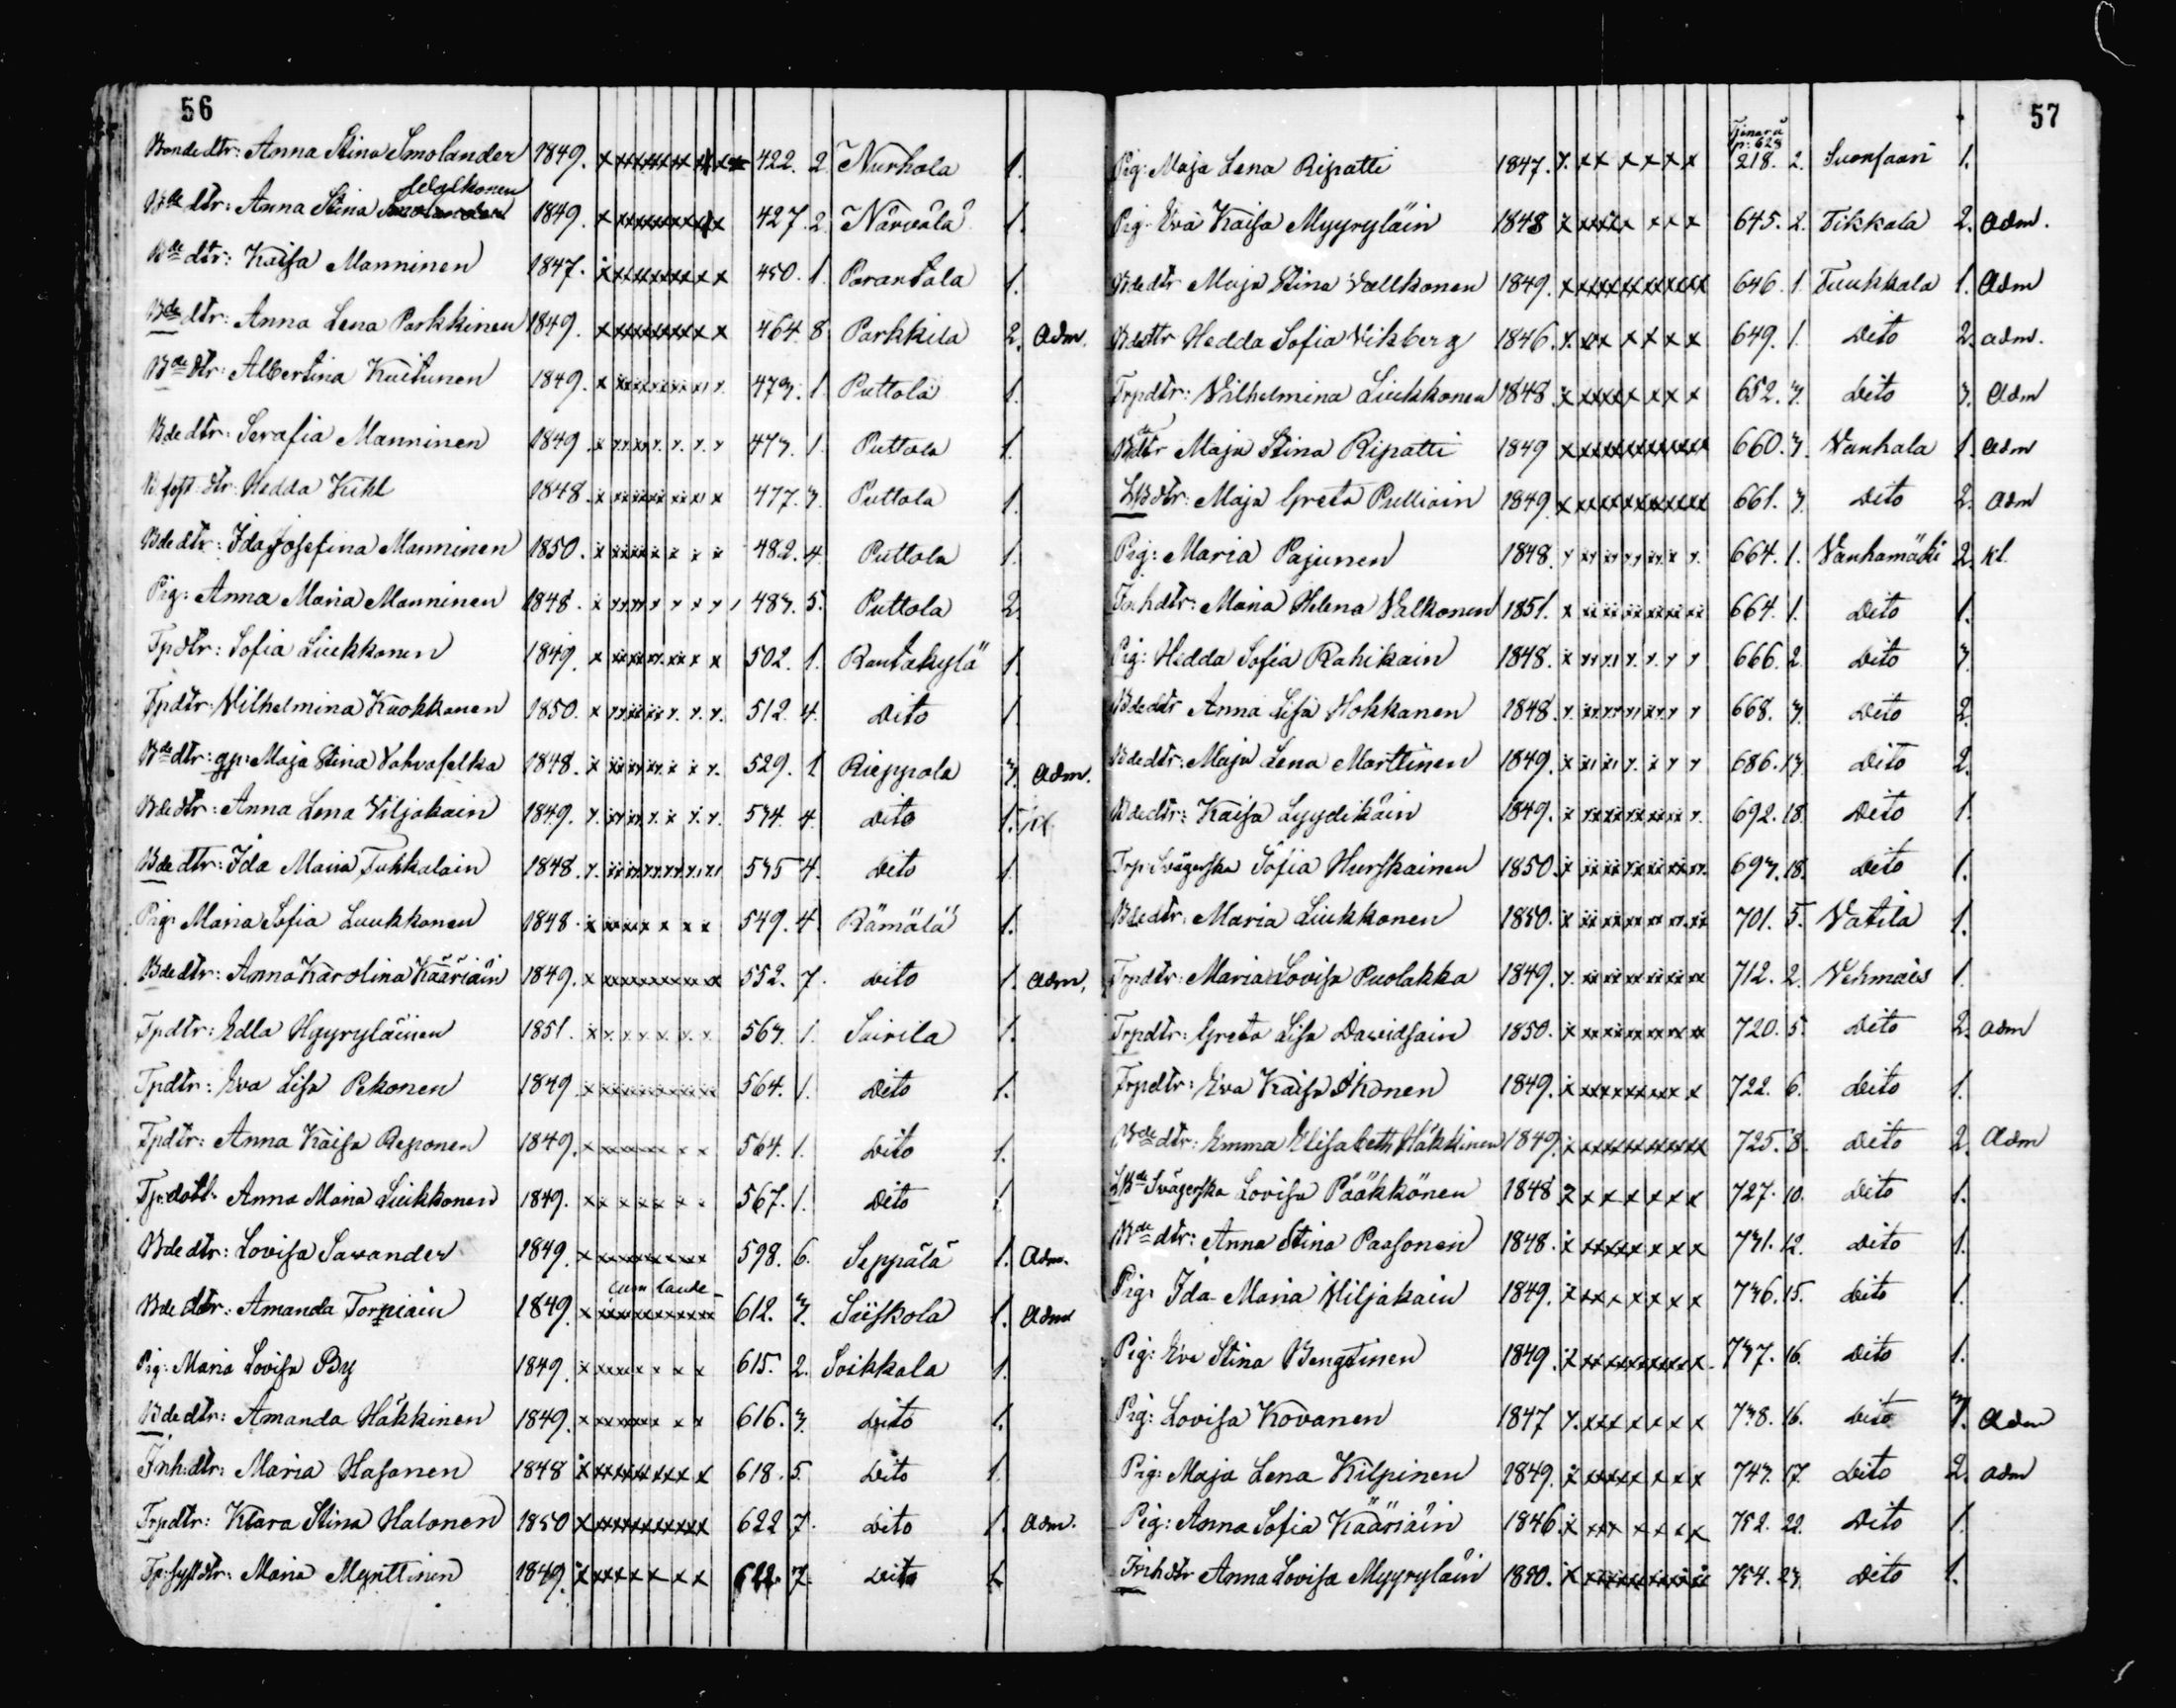 56
Bonde dtr: Anna Stina Smolander 1849. 422. 2. Nurhola 1.
Selalkonen
Bde dtr: Anna Stina 1849. 427. 2. Närvälä 1.
Bde dtr: Kaisa Manninen 1847. 450. 1. Parantala 1.
Bde dtr: Anna Lena Parkkinen 1849. 464. 8 Parkkila 2. Adm.
Bde dtr: Albertina Kuitunen 1849. 473. 1. Puttola 1.
Bde dtr: Serafia Manninen 1849 473. 1. Puttola 1.
Hedda Kihl 1848. 477. 3. Puttola 1.
Bde dtr: Ida Josefina Manninen 1850. 482. 4 Puttola 1.
Pig: Anna Maria Manninen 1848. 483. 5. Puttola 2.
Tpdtr: Sofia Liukkonen 1849. 502. 1. Rantakylä 1.
Tpdtr: Vilhelmina Kuokkanen 1850. 512. 4. Dito 1.
Bde dtr: gp: Maja Stina Vahvaselka 1848. 529. 1 Rieppola 3. Adm.
Bde dtr: Anna Lena Viljakain 1849. 534. 4. Dito 1.
Bde dtr: Ida Maria Tukkalain 1848. 535 4. Dito 1.
Pig: Maria Sofia Luukkonen 1848. 549. 4. Rämälä 1.
Bde dtr: Anna Karolina Kääriäin 1849. 552. 7. Dito 1. Adm.
Tpdtr: Edla Hyyryläinen 1851. 563. 1. Sairila 1.
Tpdtr: Eva Lisa Pekonen 1849 564. 1. Dito 1.
Tpdtr: Anna Kaisa Reponen 1849. 564. 1. Dito 1.
Tp: dott. Anna Maria Liukkonen 1849. 567. 1. Dito 1.
Bde dtr: Lovisa Savander 1849. 598. 6. Seppälä 1. Adm.
cum laude
Bde dtr: Amanda Torniain 1849. 612. 3. Siiskola 1. Adm
Pig: Maria Lovisa By 1849. 615. 2. Soikkala 1.
Bde dtr: Amanda Häkkinen 1849. 616. 3. Dito 1.
Inh: dtr: Maria Hasanen 1848 618. 5. Dito 1.
Trpdtr: Klara Stina Halonen 1850 622 7. Dito 1. Adm.
Maria Mynttinen 1849. 622. 7. Dito 1.
57
Pig: Maja Lena Ripatti 1847. 218. 2. Suonsaari 1.
Pig: Eva Kaisa Myyryläin 1848 645. 2. Tikkala 2. Adm.
Bde dtr Maja Stina Vallkonen 1849. 646. 1. Tuukkala 1. Adm
Bde dtr Hedda Sofia Vikberg 1846. 649. 1. Dito 2. adm.
Trpdtr: Vilhelmina Liukkonen 1848. 652. 3. Dito 3. Adm
Bde dtr Maja Stina Ripatti 1849 660. 3. Vanhala 1. Adm
LBdtr: Maja Greta Pulliain 1849. 661. 3. Dito 2. Adm
Pig: Maria Pajunen 1848. 664. 1. Vanhamäki 2. kl.
Inhdtr: Maria Helena Valkonen 1851. 664. 1. Dito 1.
Pig: Hedda Sofia Rahikain 1848. 666. 2. Dito 3.
Bde dtr Anna Lisa Hokkanen 1848. 668. 3. Dito 2.
Bde dtr: Maja Lena Marttinen 1849. 686. 13. Dito 2.
Bde dtr: Kaisa Lyydikäin 1849. 692. 18. Dito 1.
Trp: Svägerska Sofia Hurskainen 1850. 693. 18. Dito 1.
Bde dtr: Maria Liukkonen 1850. 701. 5. Vatila 1.
Trpdtr: Maria Lovisa Puolakka 1849. 712. 2. Vehmais 1.
Trpdtr: Greta Lisa Davidsain 1850. 720. 5. Dito 2. Adm
Trpdtr: Eva Kaisa Ikonen 1849. 722. 6. Dito 1.
Bde dtr: Emma Elisabeth Häkkinen 1849. 725. 8. Dito 2. Adm
LBde Svägerska Lovisa Pääkkönen 1848 727. 10. Dito 1.
Bde dtr: Anna Stina Paasonen 1848. 731. 12. Dito 1.
Pig: Ida Maria Viljakain 1849. 736. 15. Dito 1.
Pig: Eva Stina Bengtinen 1849. 737. 16. Dito 1.
Pig: Lovisa Kovanen 1847 738. 16. Dito Adm
Pig: Maja Lena Kilpinen 1849. 743. 17. Dito 2. adm
Pig: Anna Sofia Kääriäin 1846. 752. 22. Dito 1.
Inh dtr Anna Lovisa Myyryläin 1850. 754. 23. Dito 1.